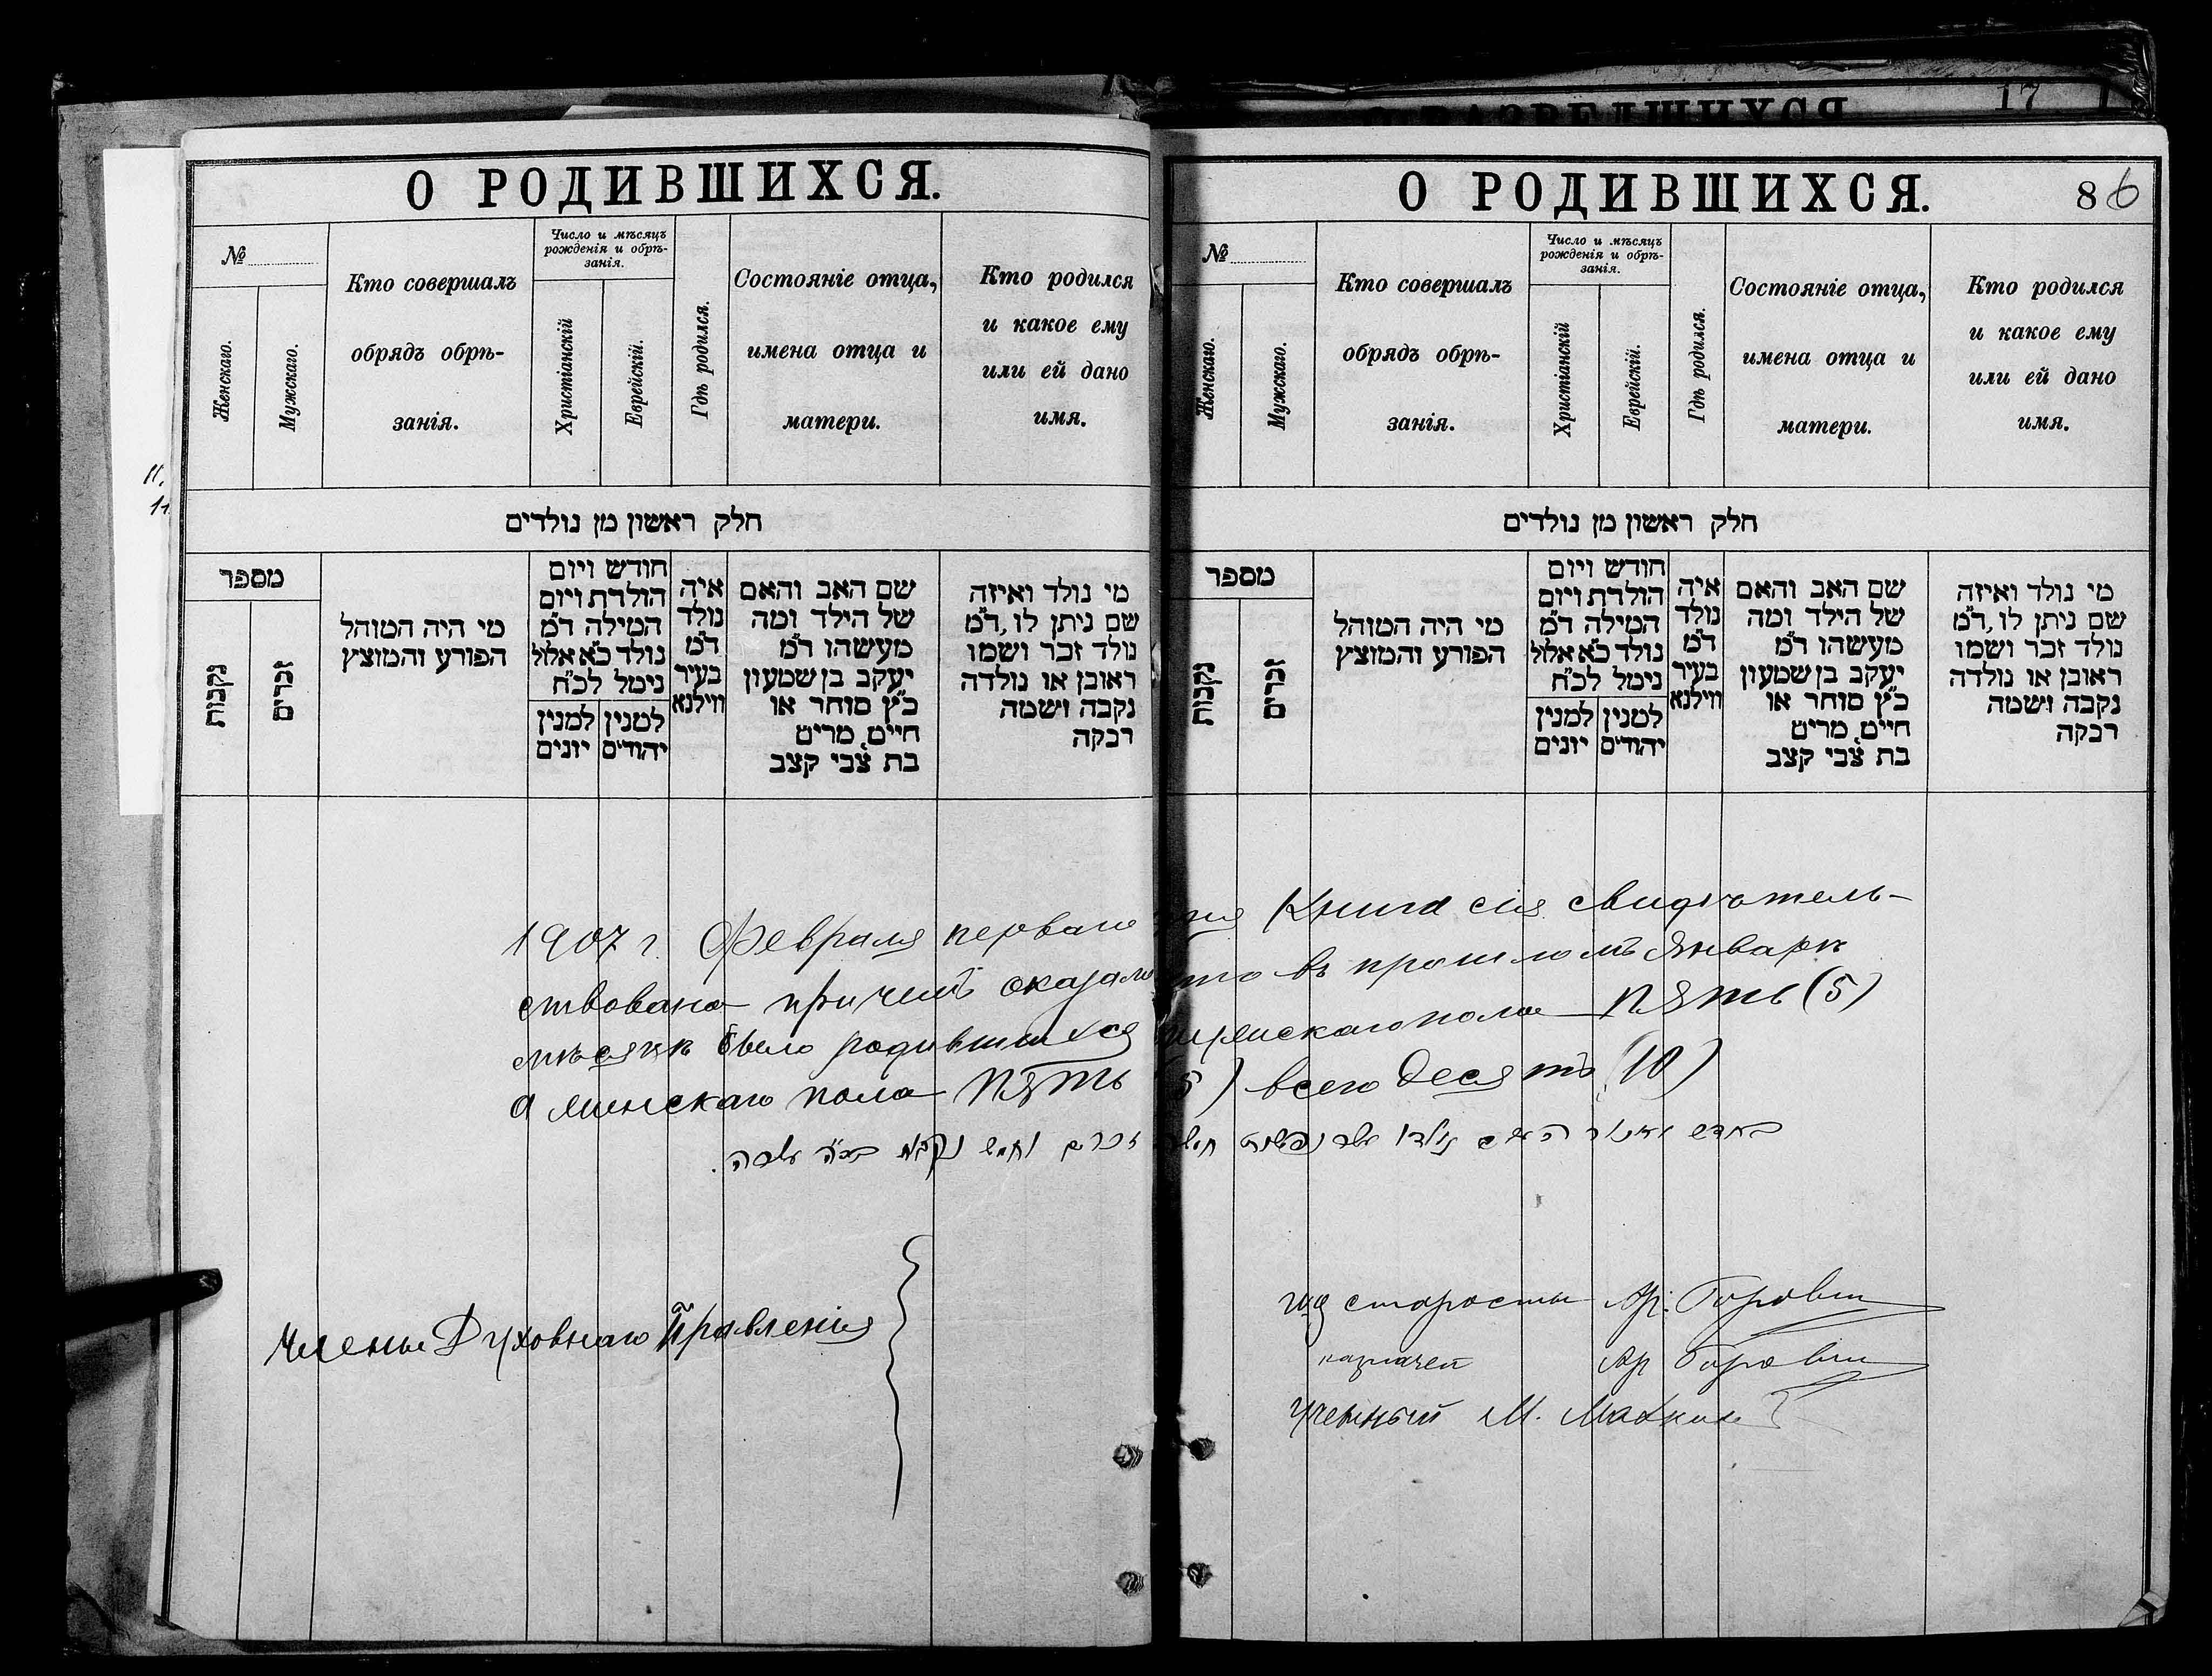 17
О РАЗВЕДШИХСЯ
О РОДИВШИХСЯ.
№
Женскаго.
Мужскаго.
Кто совершалъ
обрядъ обрѣ-
занія.
Число и мѣсяцъ
рожденія и обрѣ-
занія.
Христіанскій
Еврейскій.
Гдѣ родился.
Состояніе отца,
имена отца и
матери.
Кто родился
и какое ему
или ей дано
имя.
חלק ראשון מן נולדים
מספר
נקבות
זכרים
מי היה המוהל
הפורע והמוצץ
חודש ויום
הולדת ויום
המילה ד״מ
נולד כ״א אלול
נימל לכ״ח
למנין יונים
למנין יהודים
איה
נולד
ד״מ
בעיר
ווילנא
שם האב והאם
של הילד ומה
מעשהו ד״מ
יעקב בן שמעון
כ״ץ סוחר או
חייט, מרים
בת צבי קצב
מי נולד ואיזה
שם ניתן לו, ד״מ
נולד זכר ושמו
ראובן או נולדה
נקבה ושמה
רבקה
О РОДИВШИХСЯ.
86
№
Женскаго.
Мужскаго.
Кто совершалъ
обрядъ обрѣ-
занія.
Число и мѣсяцъ
рожденія и обрѣ-
занія.
Христіанскій
Еврейскій.
Гдѣ родился.
Состояніе отца,
имена отца и
матери.
Кто родился
и какое ему
или ей дано
имя.
חלק ראשון מן נולדים
מספר
נקבות
זכרים
מי היה המוהל
הפורע והמוצץ
חודש ויום
הולדת ויום
המילה ד״מ
נולד כ״א אלול
נימל לכ״ח
למנין יונים
למנין יהודים
איה
נולד
ד״מ
בעיר
ווילנא
שם האב והאם
של הילד ומה
מעשהו ד״מ
יעקב בן שמעון
כ״ץ סוחר או
חייט, מרים
בת צבי קצב
מי נולד ואיזה
שם ניתן לו, ד״מ
נולד זכר ושמו
ראובן או נולדה
נקבה ושמה
רבקה
1907 г. Февраля перваго дня Книга сія свидѣтель-
ствована причемъ оказало что въ прошломъ Январѣ
мѣсяцѣ было родившихся мужескаго пола пять (5)
а женскаго пола пять (5) всего десять (10)
נולדו עשר נפשות חמש זכרים וחמש נקבות עשרה.
Члены Духовнаго Правленія
старосты Ар.
казначей Ар
Ученый М.